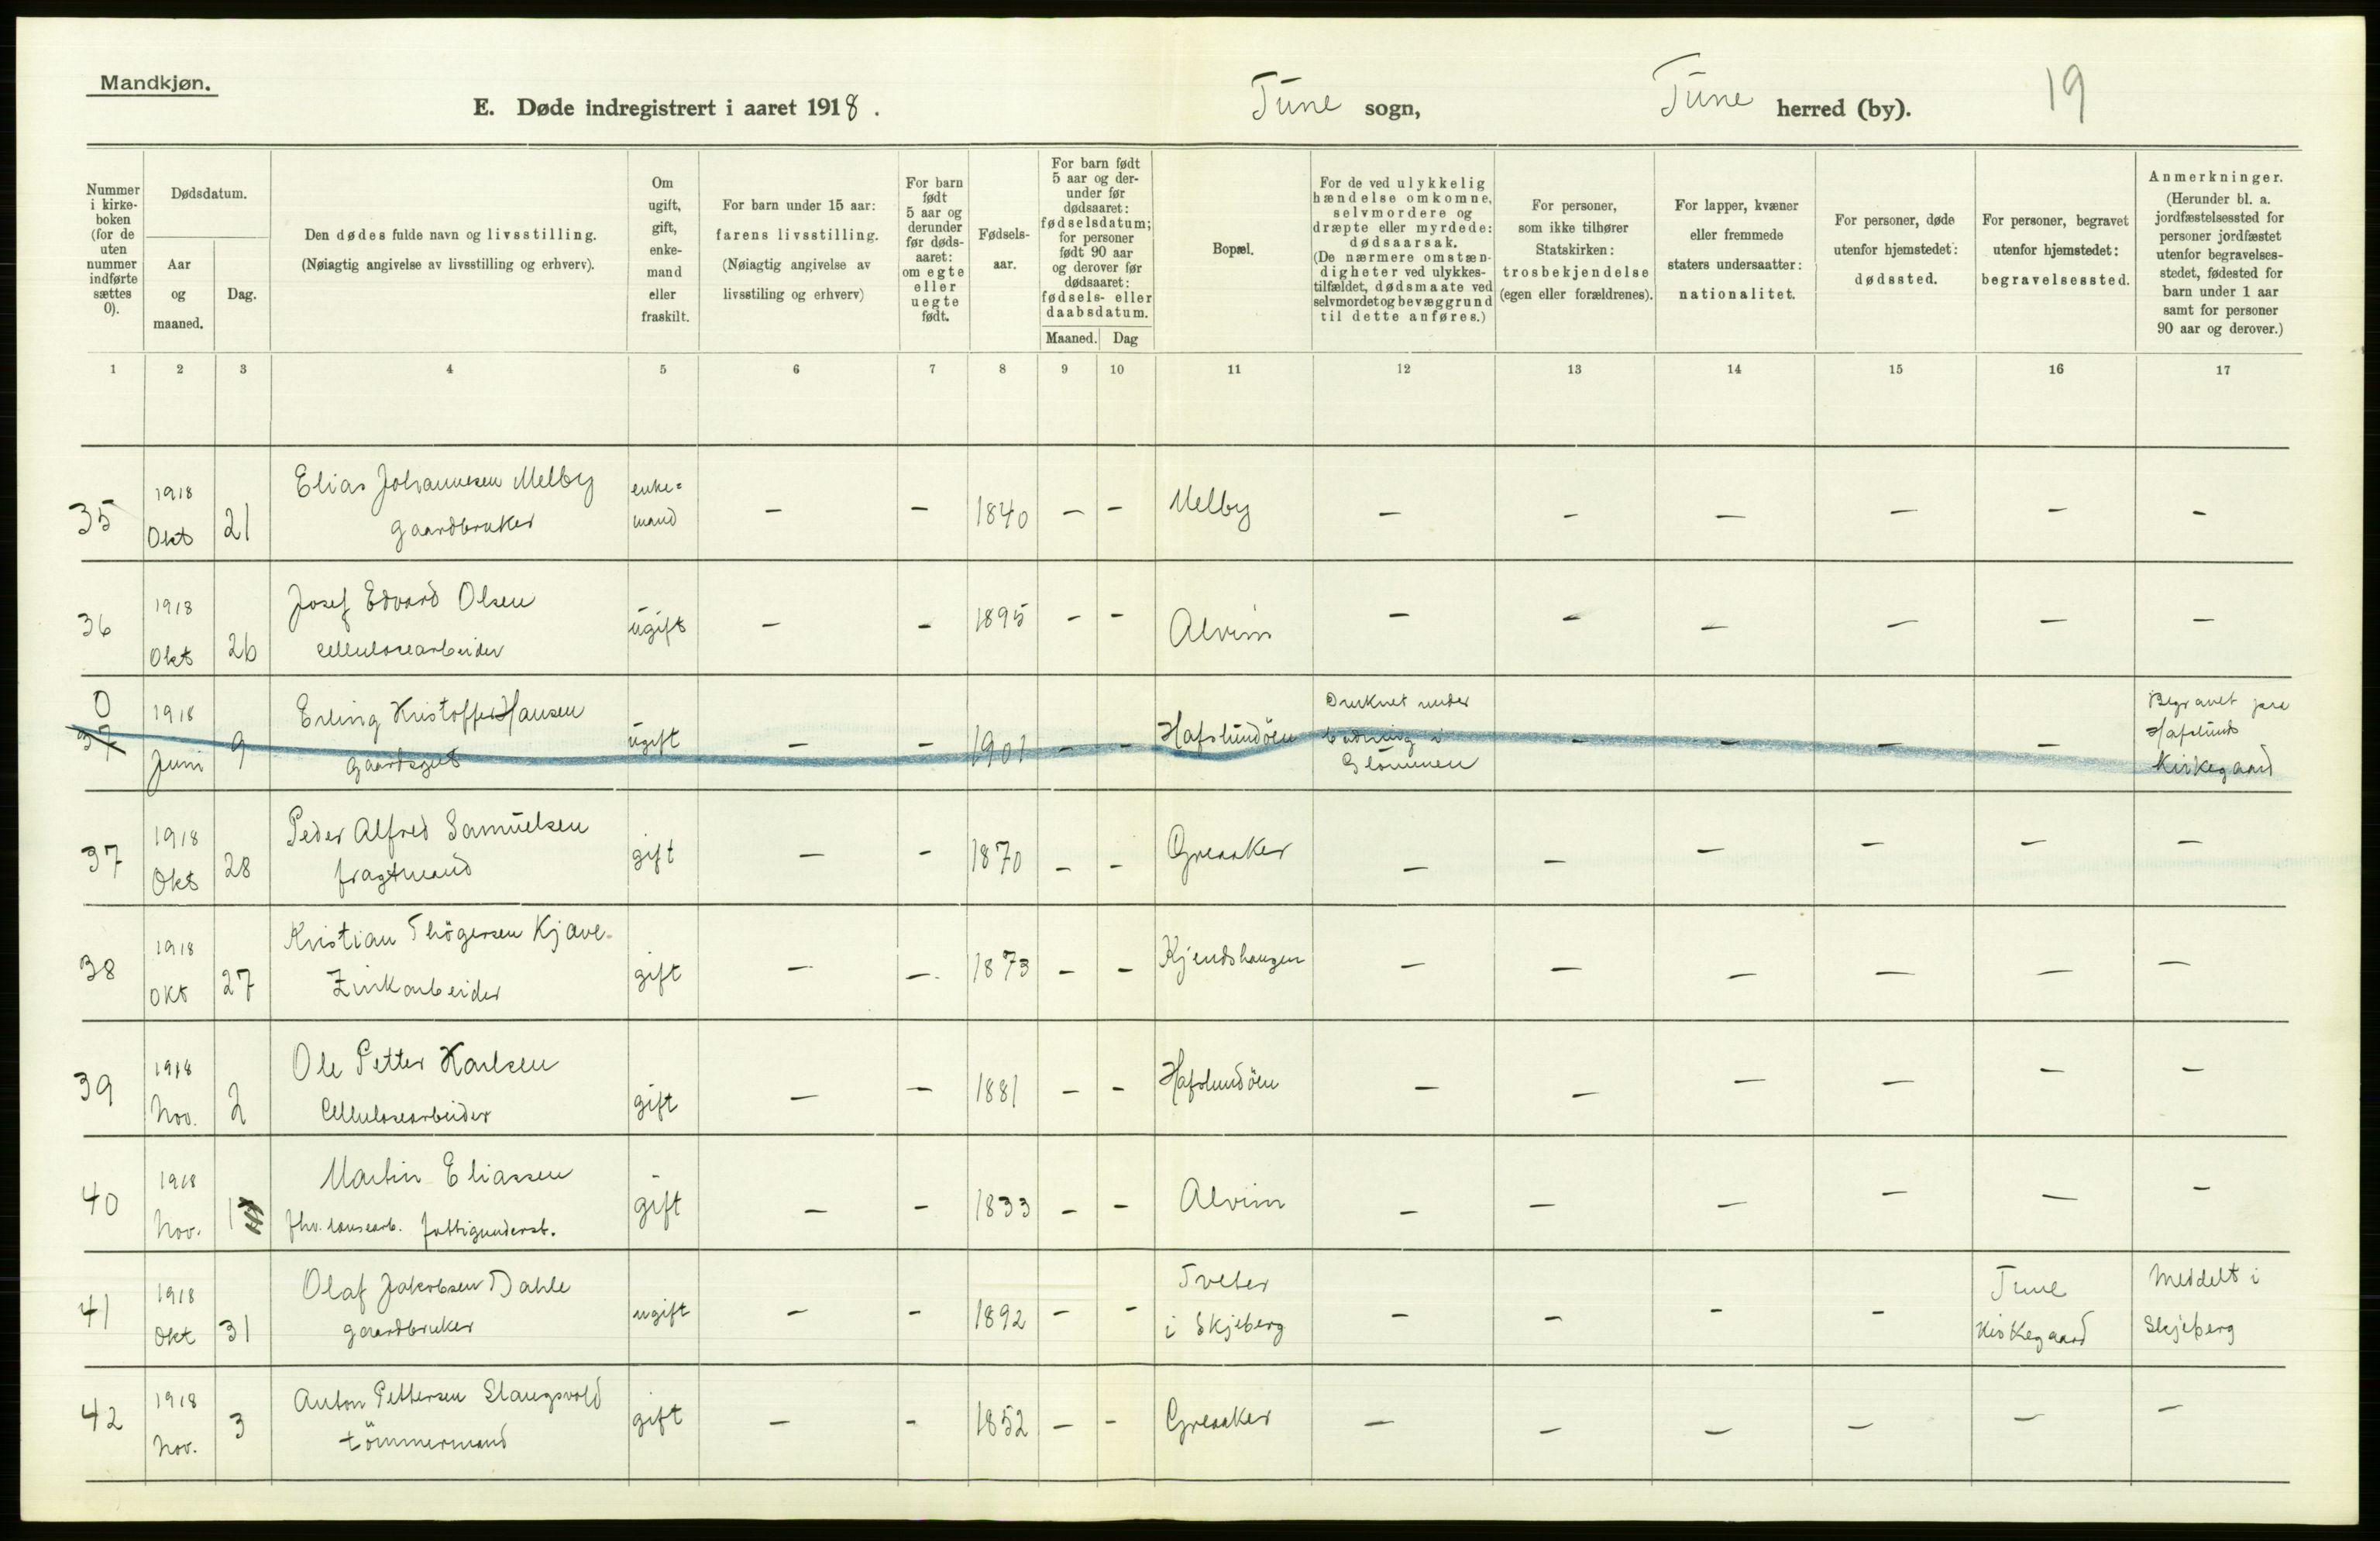 Mandkjøn.
E. Døde indregistrert i aaret 1918. Tune sogn, Tune herred (by). 19
Nummer i kirke-boken (for de uten nummer indførte sættes 0).
Dødsdatum.
Aar og maaned.
Dag.
Den dødes fulde navn og livsstilling.
(Nøiagtig angivelse av livsstilling og erhverv).
Om ugift, gift, enke-mand eller fraskilt.
For barn under 15 aar: farens livsstilling.
(Nøiagtig angivelse av livsstiling og erhverv)
For barn født 5 aar og derunder før døds-aaret: om egte eller uegte født.
Fødsels-aar.
For barn født 5 aar og der-under før dødsaaret: fødselsdatum; for personer født 90 aar og derover før dødsaaret: fødsels- eller daabsdatum.
Maaned. Dag
Bopæl.
For de ved ulykkelig hændelse omkomne, selvmordere og dræpte eller myrdede: dødsaarsak.
(De nærmere omstæn-digheter ved ulykkes-tilfældet, dødsmaate ved selvmordet og bevæggrund til dette anføres.)
For personer, som ikke tilhører Statskirken: trosbekjendelse (egen eller forældrenes).
For lapper, kvæner eller fremmede staters undersaatter: nationalitet.
For personer, døde utenfor hjemstedet: dødssted.
For personer, begravet utenfor hjemstedet: begravelsessted.
Anmerkninger.
(Herunder bl. a. jordfæstelsessted for personer jordfæstet utenfor begravelses-stedet, fødested for barn under 1 aar samt for personer 90 aar og derover.)
1 2 3 4 5 6 7 8 9 10 11 12 13 14 15 16 17
35 1918 Okt 21 Elias Johannesen Melby gaardbruker enke= mand — — 1840 — — Melby — — — — — —
36 1918 Okt 26 Josef Edvard Olsen cellulosearbeider ugift — — 1895 — — Alvim — — — — — —
0 37 1918 Juni 9 Erling Kristoffer Hansen gaardsgut ugift — — 1901 — — Hafslundöen Druknet under badning i Glommen — — — — Begravet paa Hafslunds Kirkegaard
37 1918 Okt 28 Peder Alfred Samuelsen fragtmand gift — — 1870 — — Greaaker — — — — — —
38 1918 Okt 27 Kristian Thögersen Kjave- Zinkarbeider gift — — 1873 — — Kjendshaugen — — — — — —
39 1918 Nov. 2 Ole Petter Karlsen Cellulosearbeider gift — — 1881 — — Hafslundöen — — — — — —
40 1918 Nov. 1 Martin Eliassen fhv. lænsearb. fattigunderst. gift — — 1833 — — Alvim — — — — — —
41 1918 Okt 31 Olaf Jakobsen Dahle gaardbruker ugift — — 1892 — — Tveter i Skjeberg — — — — Tune Kirkegaard Meddelt i Skjeberg
42 1918 Nov. 3 Anton Pettersen Slangsvold tömmermand gift — — 1852 — — Greaaker — — — — — —